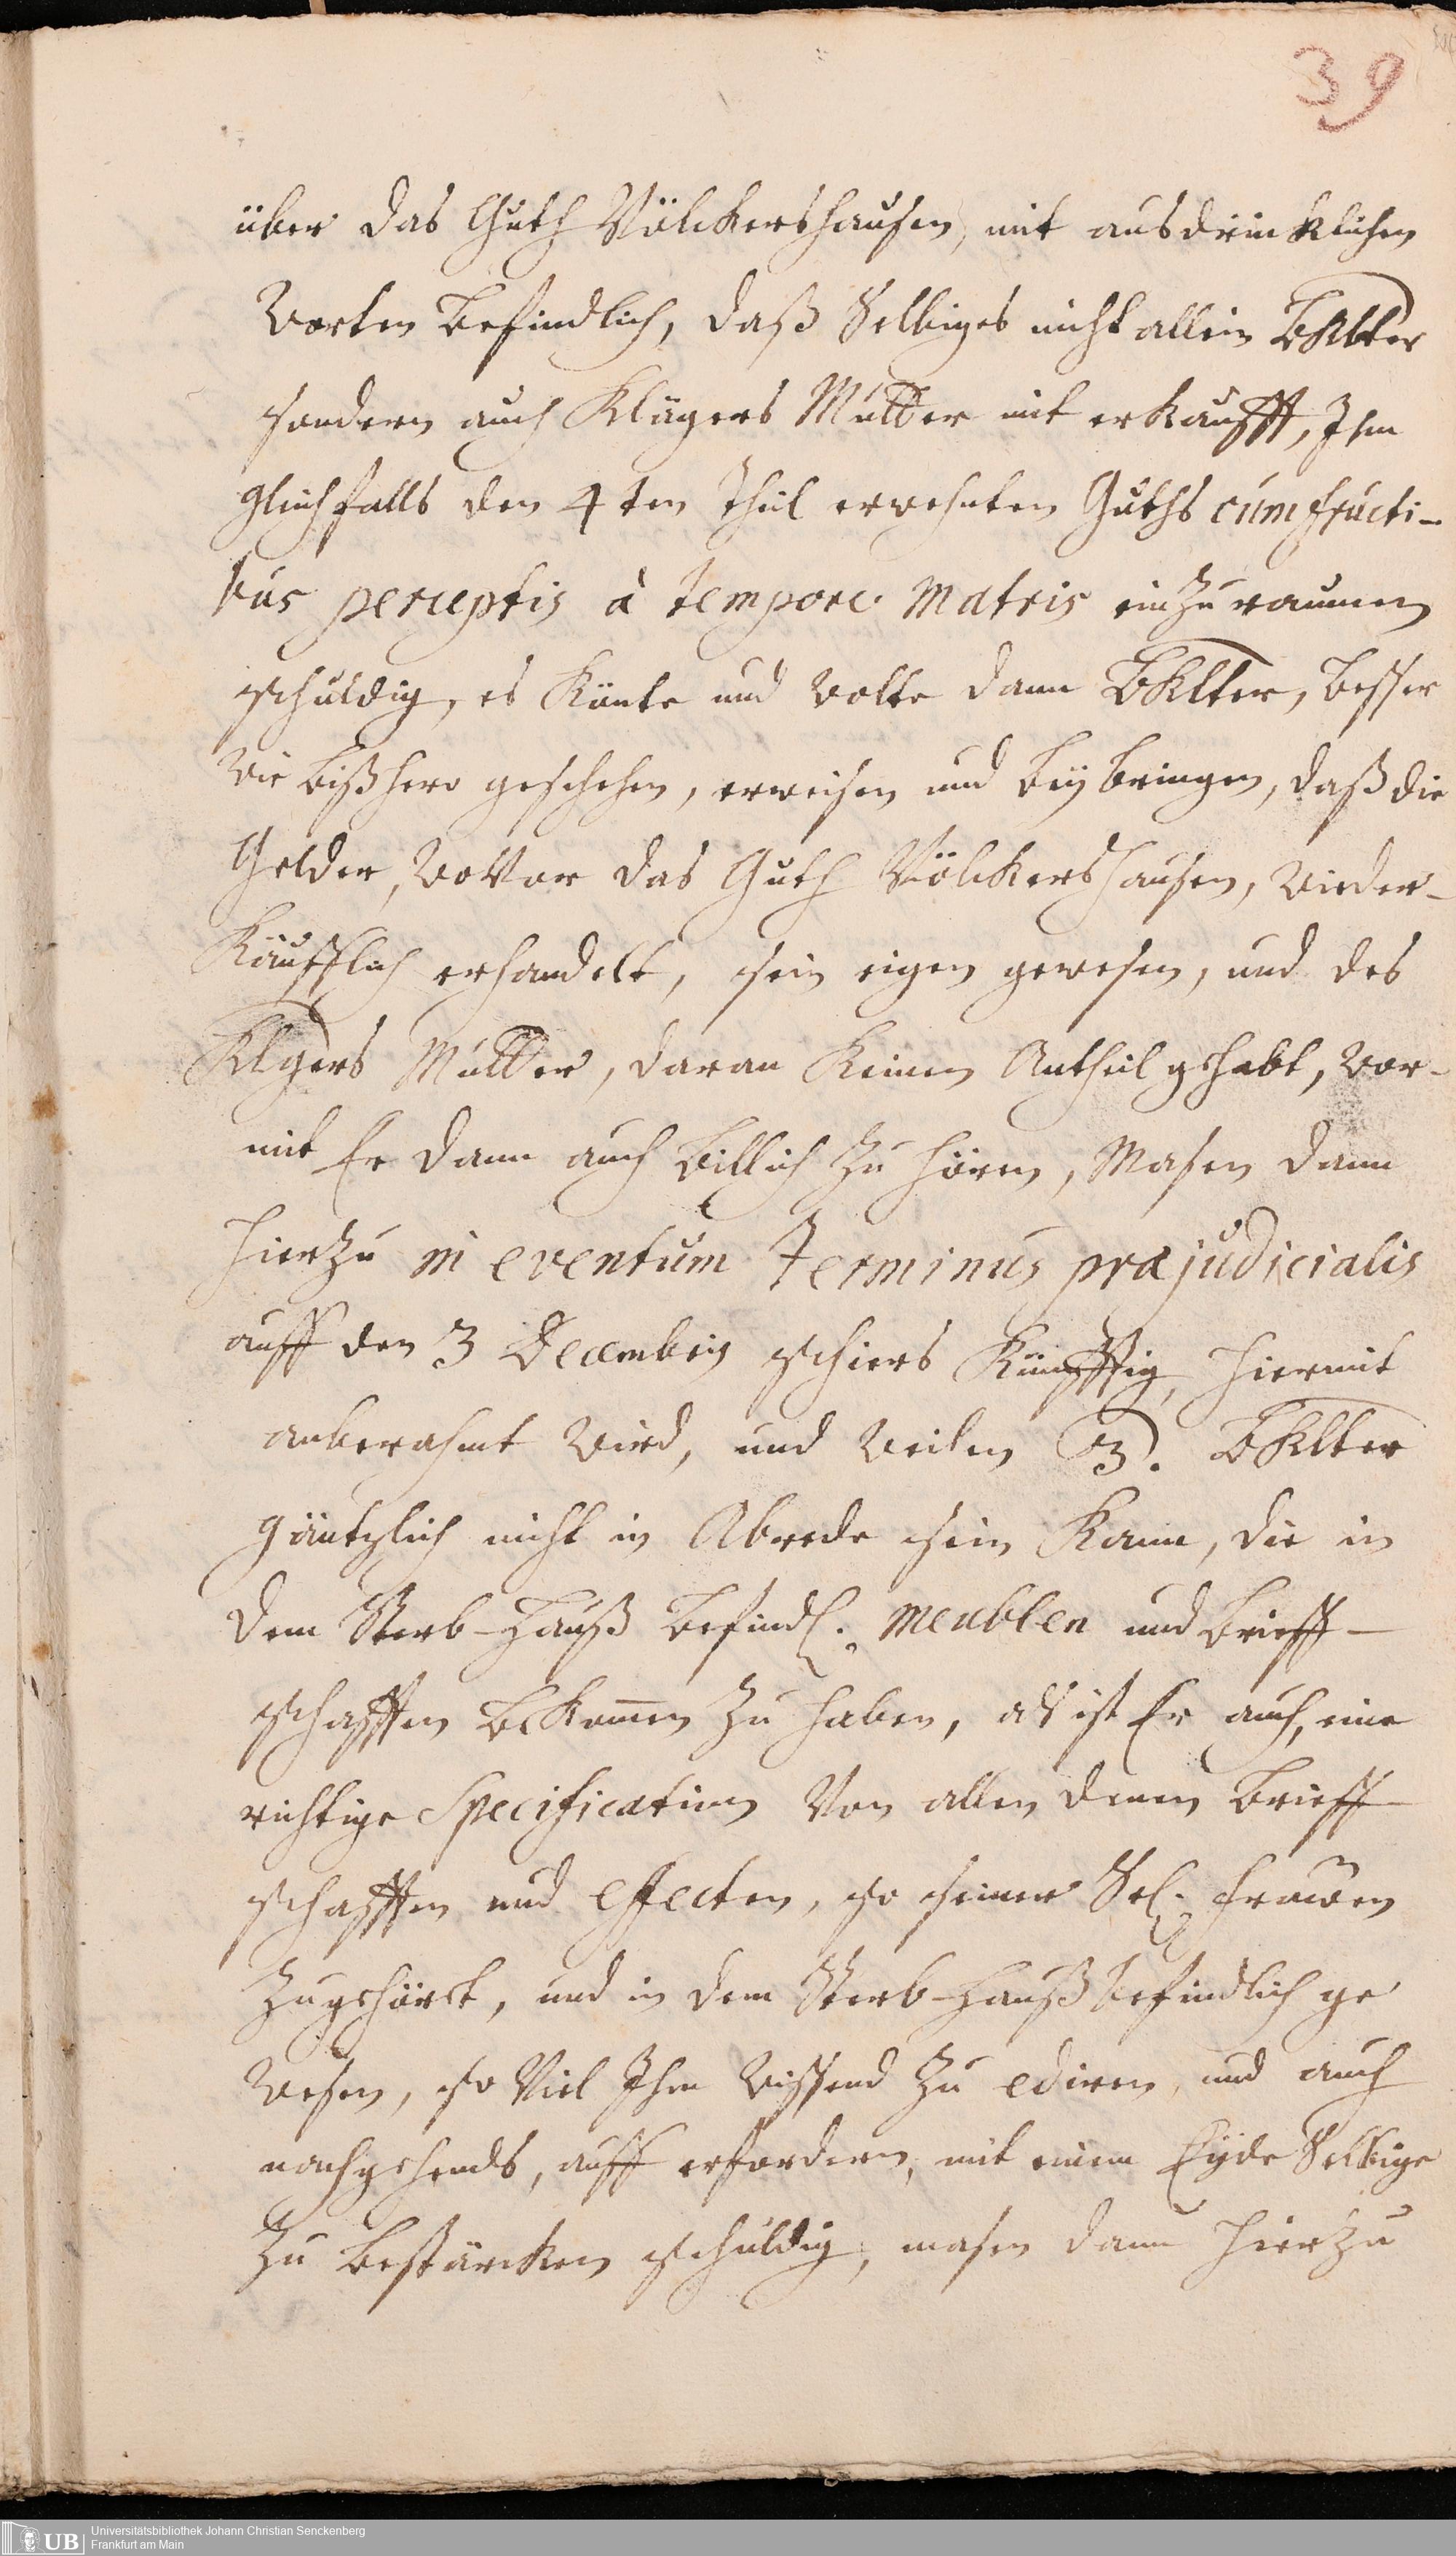 39
über das Guth Völckershausen, mit ausdrücklichen
Worten befindlich, daß Selbiges nicht allein Bklter
sondern auch Klägers Mutter mit erkaufft, Ihm
gleichfalls den 4ten Theil erwehnten Guths cum fructi-
bus perceptis à tempore Matris einzuraumen
schuldig, es könte und wolte dann Bklter, besser
wie bißhero geschehen, erweisen und beÿbringen, daß die
Gelder, wovor das Guth Völckershausen, wieder-
käufflich erhandelt, sein eigen gewesen, und des
Klgers Mutter, daran keinen Antheil gehabt, wor-
mit Er dann auch billich zu hören, Masen dann
hierzu in eventum Terminus præjudicialis
auff den 3 Decembris schiers künfftig, hiermit
anberahmt wird, und weilen 3. Bklter
gäntzlich nicht in Abrede sein kann, die in
dem Sterb-Hauß befindl. meublen und Brieff-
schafften bekom̄en zu haben, als ist Er auch, eine
richtige Specification von allen denen Brieff
schafften und effecten, so seiner Sel. Frauen
zugehört, und in dem Sterb-Hauß befindlich ge
wesen, so viel Ihm wissend zu ediren, und auch
nachgehends, auff erfordern, mit einem Eÿde Selbige
zu bestärcken schuldig, masen dann hierzu
UB
Universitätsbibliothek Johann Christian Senckenberg
Frankfurt am Main